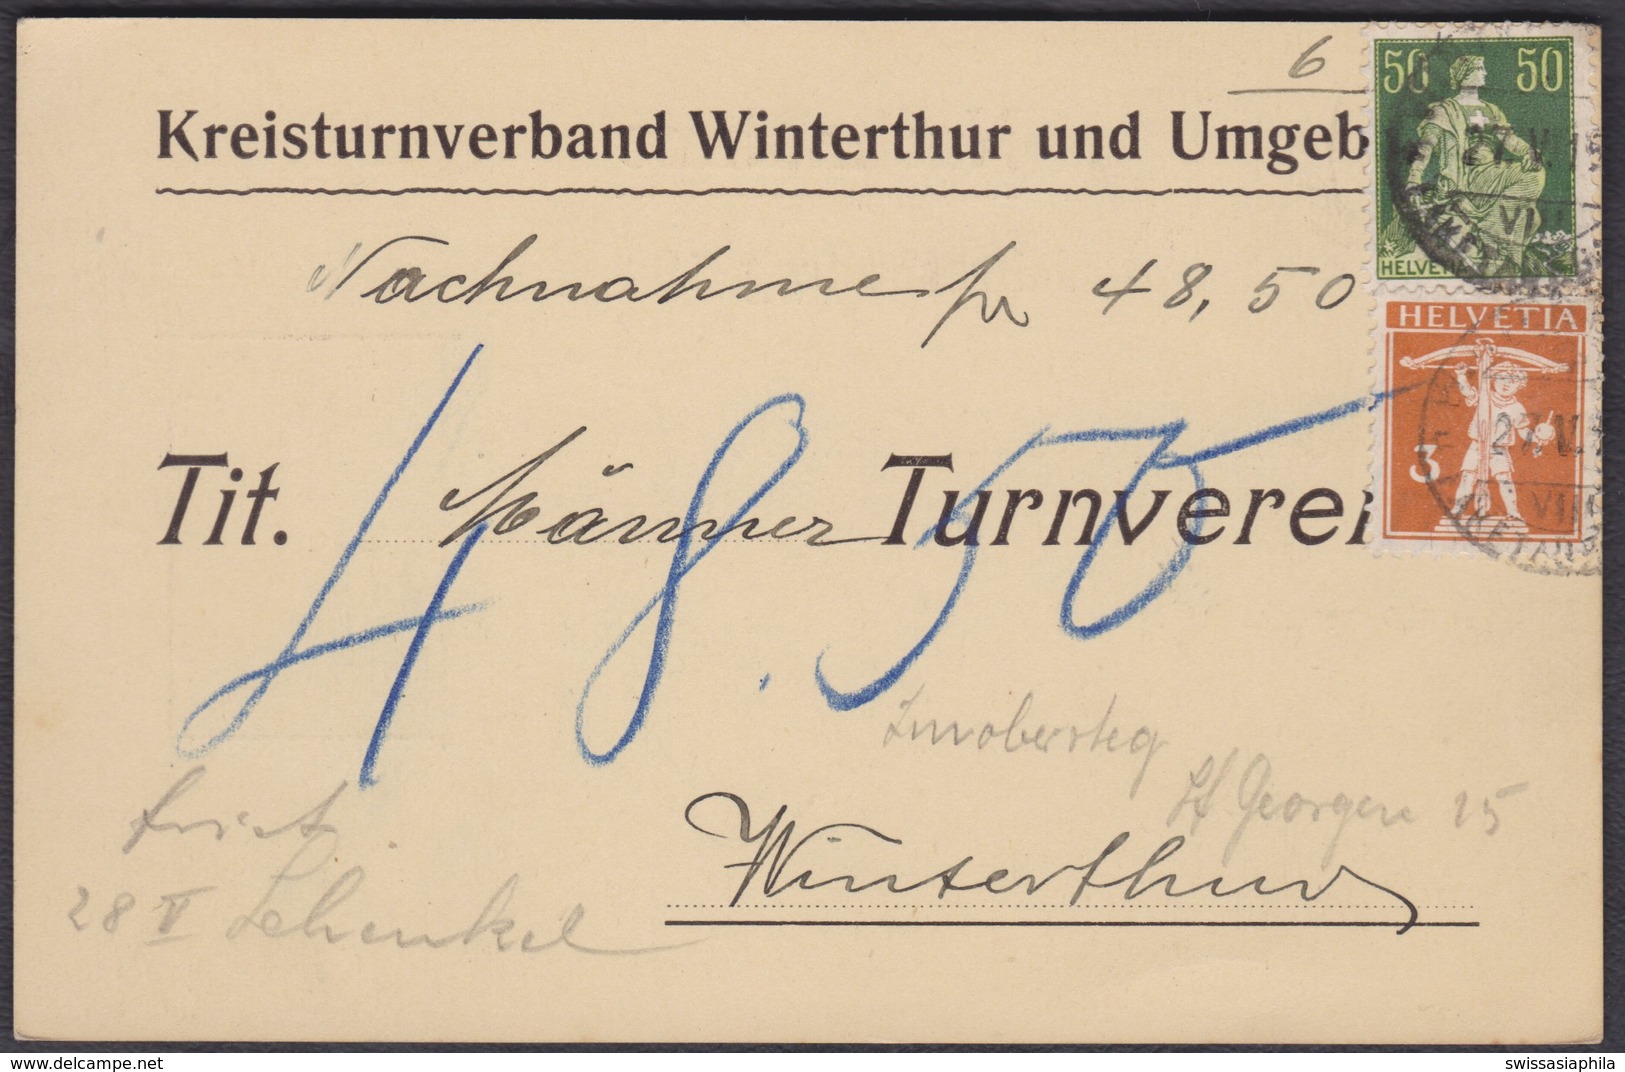 6
Kreisturnverband Winterthur und Umgeb
50 50
HELVE
27.V.
VIII
Nachnahme fr 48,50
HELVETIA
3
27.V.
VIII
48.50
Tit. Männer Turnverei
Imobersteg
St Georgen 25
Winterthur
28 V Schenkel
delcampe.net
swissasiaphila